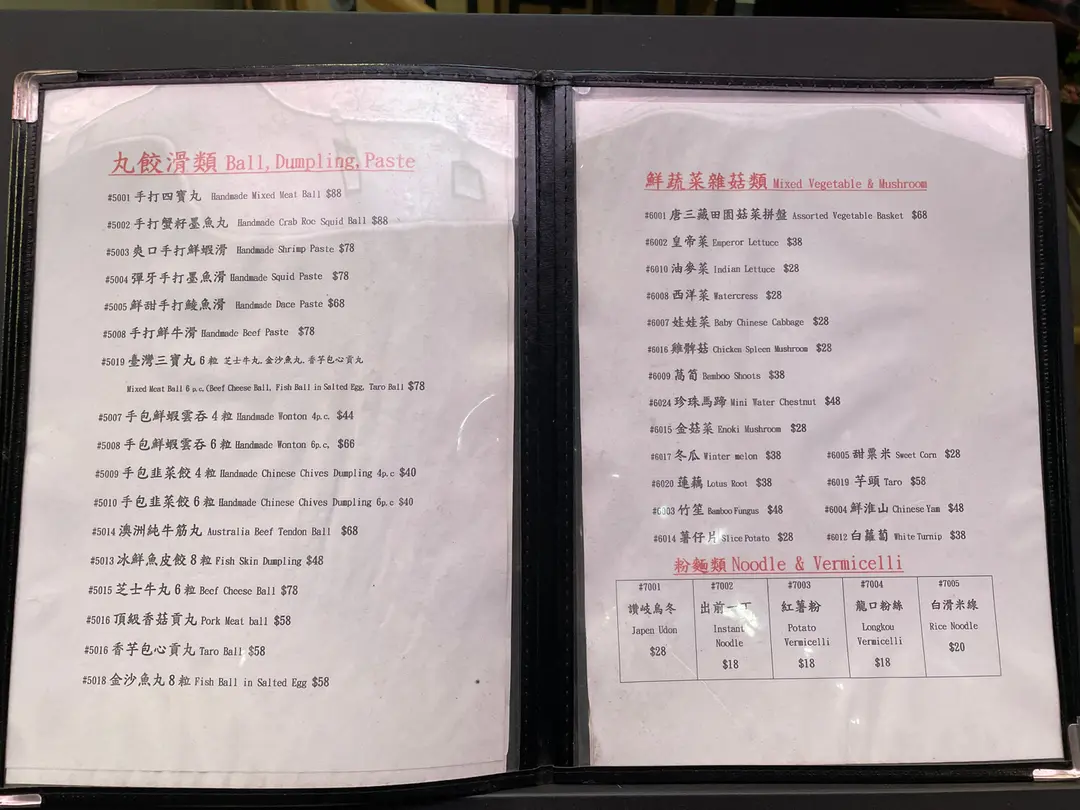 丸餃滑類 Ball, Dumpling, Paste
#5001 手打四寶丸 Handmade Mixed Meat Ball $88
#5002 手打蟹籽墨魚丸 Handmade Crab Roe Squid Ball $88
#5003 爽口手打鮮蝦滑 Handmade Shrimp Paste $78
#5004 彈牙手打墨魚滑 Handmade Squid Paste $78
#5005 鮮甜手打鯪魚滑 Handmade Dace Paste $68
#5008 手打鮮牛滑 Handmade Beef Paste $78
#5019 臺灣三寶丸 6 粒 芝士牛丸, 金沙魚丸, 香芋包心貢丸
Mixed Meat Ball 6 p.c. (Beef Cheese Ball, Fish Ball in Salted Egg, Taro Ball $78
#5007 手包鮮蝦雲吞 4 粒 Handmade Wonton 4p.c. $44
#5008 手包鮮蝦雲吞 6 粒 Handmade Wonton 6p.c. $66
#5009 手包韭菜餃 4 粒 Handmade Chinese Chives Dumpling 4p.c $40
#5010 手包韭菜餃 6 粒 Handmade Chinese Chives Dumpling 6p.c $40
#5014 澳洲純牛筋丸 Australia Beef Tendon Ball $68
#5013 冰鮮魚皮餃 8 粒 Fish Skin Dumpling $48
#5015 芝士牛丸 6 粒 Beef Cheese Ball $78
#5016 頂級香菇貢丸 Pork Meat ball $58
#5016 香芋包心貢丸 Taro Ball $58
#5018 金沙魚丸 8 粒 Fish Ball in Salted Egg $58
鮮蔬菜雜菇類 Mixed Vegetable & Mushroom
#6001 唐三藏田園菇菜拼盤 Assorted Vegetable Basket $68
#6002 皇帝菜 Emperor Lettuce $38
#6010 油麥菜 Indian Lettuce $28
#6008 西洋菜 Watercress $28
#6007 娃娃菜 Baby Chinese Cabbage $28
#6016 雞髀菇 Chicken Spleen Mushroom $28
#6009 萵筍 Bamboo Shoots $38
#6024 珍珠馬蹄 Mini Water Chestnut $48
#6015 金菇菜 Enoki Mushroom $28
#6017 冬瓜 Winter melon $38 #6005 甜粟米 Sweet Corn $28
#6020 蓮藕 Lotus Root $38 #6019 芋頭 Taro $58
#6003 竹笙 Bamboo Fungus $48 #6004 鮮淮山 Chinese Yam $48
#6014 薯仔片 Slice Potato $28 #6012 白蘿蔔 White Turnip $38
粉麵類 Noodle & Vermicelli
#7001 #7002 #7003 #7004 #7005
讚岐烏冬 出前一丁 紅薯粉 龍口粉絲 白滑米線
Japen Udon Instant Potato Longkou Rice Noodle
Noodle Vermicelli Vermicelli
$28 $18 $18 $18 $20